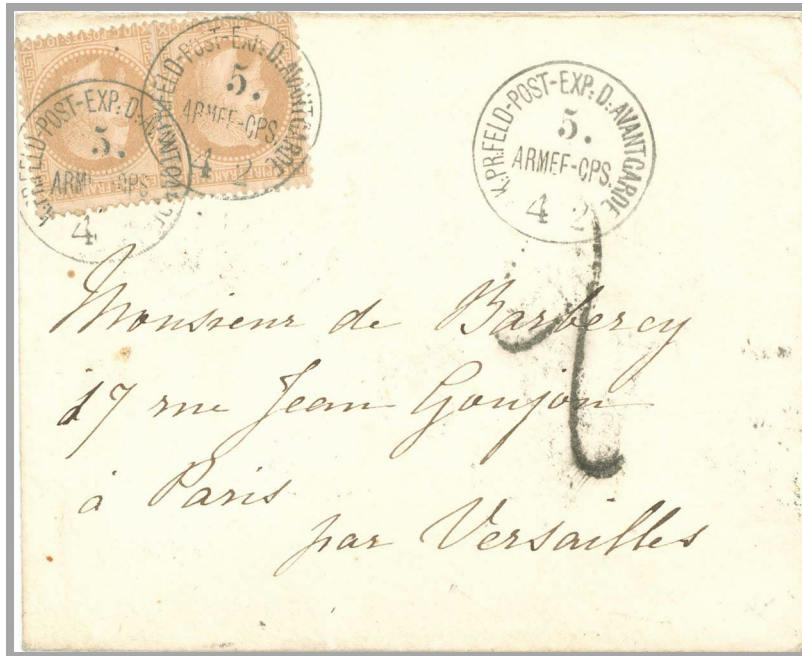 K.PR.FELD-POST-EXP. D. AVANTGARDE
5.
ARMEE-CPS.
4 2
K.PR.FELD-POST-EXP. D. AVANTGARDE
5.
ARMEE-CPS.
4
K.PR.FELD-POST-EXP. D. AVANTGARDE
5.
ARMEE-CPS.
4 2
2
Monsieur de Barbercy
17 rue Jean Goujon
à Paris
par Versailles